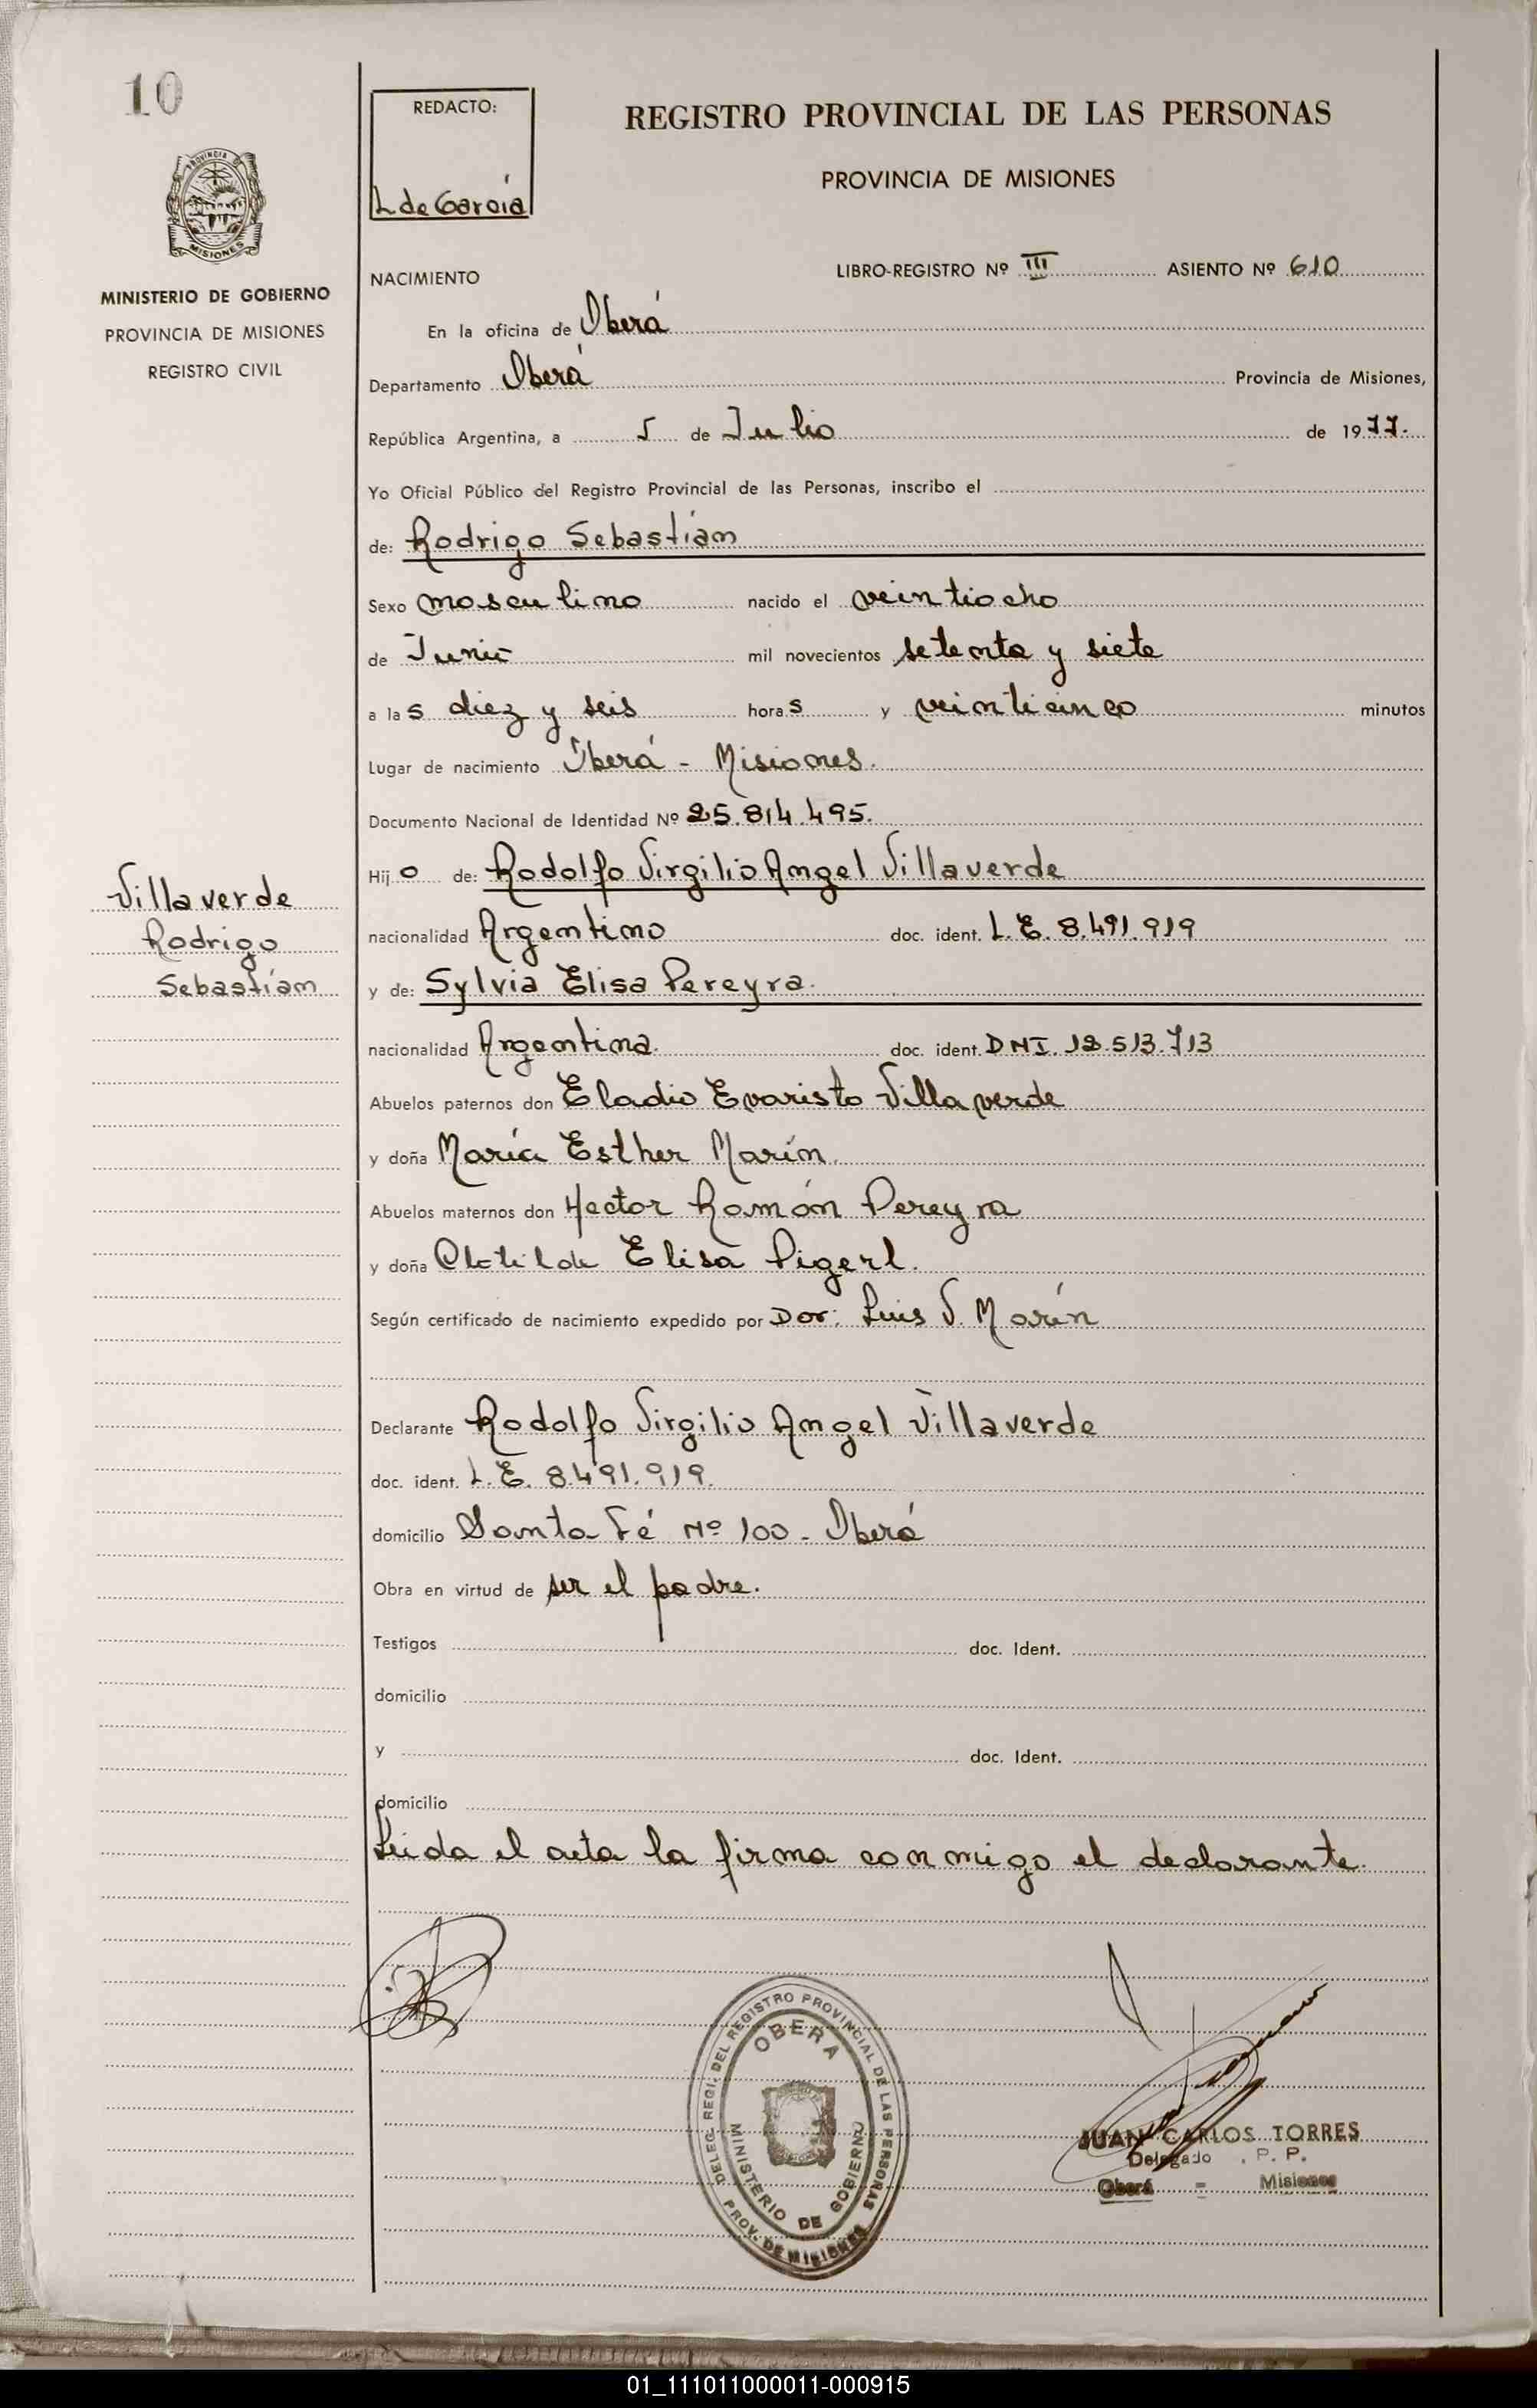 10
MINISTERIO DE GOBIERNO
PROVINCIA DE MISIONES
REGISTRO CIVIL
Villaverde
Rodrigo
Sebastián
REDACTO:
L de García
REGISTRO PROVINCIAL DE LAS PERSONAS
PROVINCIA DE MISIONES
NACIMIENTO LIBRO-REGISTRO Nº III ASIENTO Nº 610
En la oficina de Oberá
Departamento Oberá Provincia de Misiones,
República Argentina, a 5 de Julio de 1977.
Yo Oficial Público del Registro Provincial de las Personas, inscribo el
de: Rodrigo Sebastián
Sexo masculino nacido el veintiocho
de Junio mil novecientos setenta y siete
a las diez y seis horas y veinticinco minutos
Lugar de nacimiento Oberá - Misiones.
Documento Nacional de Identidad Nº 25.814.495.
Hijo de: Rodolfo Virgilio Angel Villaverde
nacionalidad Argentino doc. ident. L.E. 8.491.919
y de: Sylvia Elisa Pereyra.
nacionalidad Argentina. doc. ident. DNI. 12.513.713
Abuelos paternos don Eladio Evaristo Villaverde
y doña María Esther Marín.
Abuelos maternos don Hector Ramón Pereyra
y doña Clotilde Elisa Pigerl.
Según certificado de nacimiento expedido por Dor: Luis V. Marín
Declarante Rodolfo Virgilio Angel Villaverde
doc. ident. L.E. 8.491.919.
domicilio Santa Fé Nº 100 - Oberá
Obra en virtud de ser el padre.
Testigos doc. Ident.
domicilio
y doc. Ident.
domicilio
Leida el acta la firma conmigo el declarante.
DELEG. REGI. DEL REGISTRO PROVINCIAL DE LAS PERSONAS
OBERA
MINISTERIO DE GOBIERNO
PROV. DE MISIONES
JUAN CARLOS TORRES
Delegado . P. P.
Oberá - Misiones
01_111011000011-000915